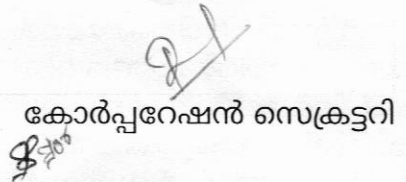 കോർപ്പറേഷൻ സെക്രട്ടറി